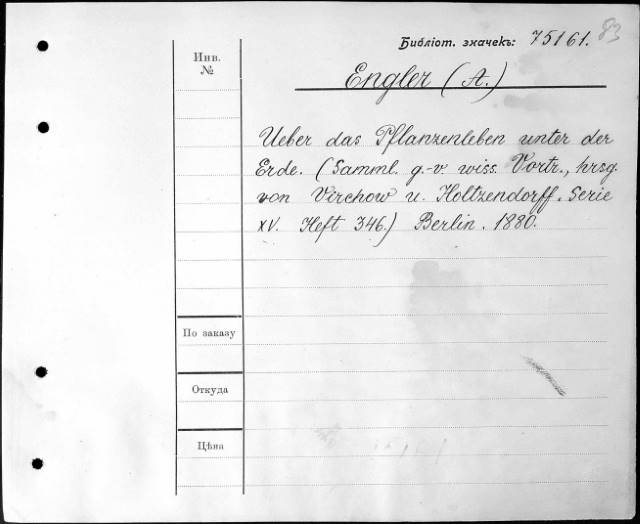 Библіот. значекъ: 75161. 83
Инв.
№
Engler (A.)
Ueber das Pflanzenleben unter der
Erde. (Samml. g.-v. wiss. Vortr., hrsg.
von Virchow u. Holtzendorff. Serie
XV. Heft 346.) Berlin. 1880.
По заказу
Откуда
Цѣна